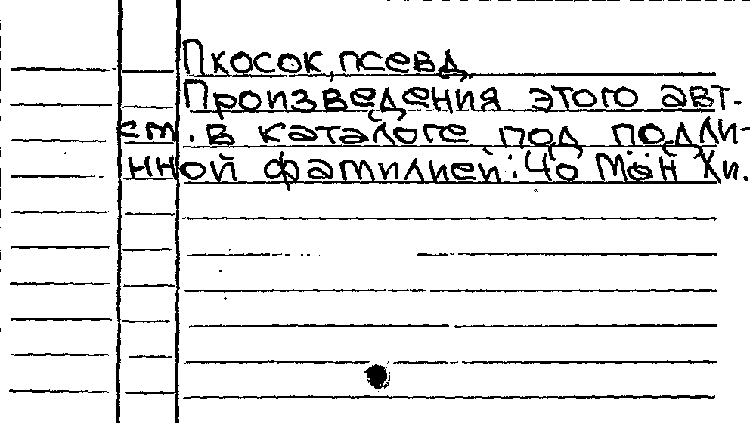 Пкосок, псевд.
Произведения этого авт-
см. в каталоге под подли-
нной фамилией: Чо Мён Хи.